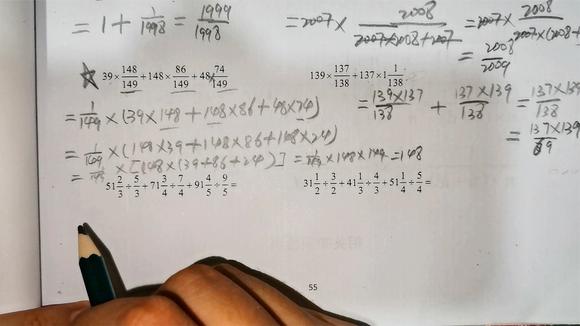 = 1 + 1/1998 = 1999/1998
= 2007 × 2008/(2007×2008+2007) = 2007 × 2008/(2007×(2008+
= 2008/2009
39 × 148/149 + 148 × 86/149 + 48 × 74/149
139 × 137/138 + 137 × 1 1/138
= 1/149 × (39 × 148 + 148 × 86 + 48 × 74)
= 139×137/138 + 137×139/138 = 137×139/138
= 1/149 × (148×39 + 148×86 + 148×24)
= 137×139/69
= 1/149 × [148 × (39+86+24)] = 1/149 × 148 × 149 = 148
51 2/3 ÷ 5/3 + 71 3/4 ÷ 7/4 + 91 4/5 ÷ 9/5 =
31 1/2 ÷ 3/2 + 41 1/3 ÷ 4/3 + 51 1/4 ÷ 5/4 =
55